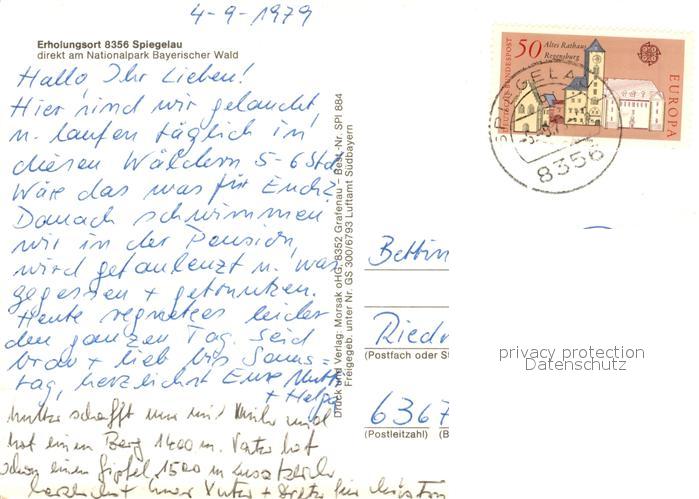 4-9-1979
Erholungsort 8356 Spiegelau
direkt am Nationalpark Bayerischer Wald
Hallo, Ihr Lieben!
Hier sind wir gelandet,
u. laufen täglich in
diesen Wäldern 5-6 Std.
Wäre das was für Euch?
Danach schwimmen
wir in der Pension,
wird gefaulenzt u. was
gegessen + getrunken.
Heute regnet es leider
den ganzen Tag. Seid
brav + lieb bis Sams=
tag, herzlichst Eure Mutti
+ Helga
Mutter schafft nur mit Mühe und
hat einen Berg 1400 m. Vater hat
schon einen Gipfel 1500 m zusätzlich
herzlichst Euer Vater +
Druck und Verlag: Morsak oHG, 8352 Grafenau – Best.-Nr. SPI 884
Freigegeb. unter Nr. GS 300/6793 Luftamt Südbayern
DEUTSCHE BUNDESPOST
50
Altes Rathaus
Regensburg
EUROPA
SPIEGELAU
8356
Bettin
Riedr
(Postfach oder St
6367
(Postleitzahl) (B
privacy protection
Datenschutz